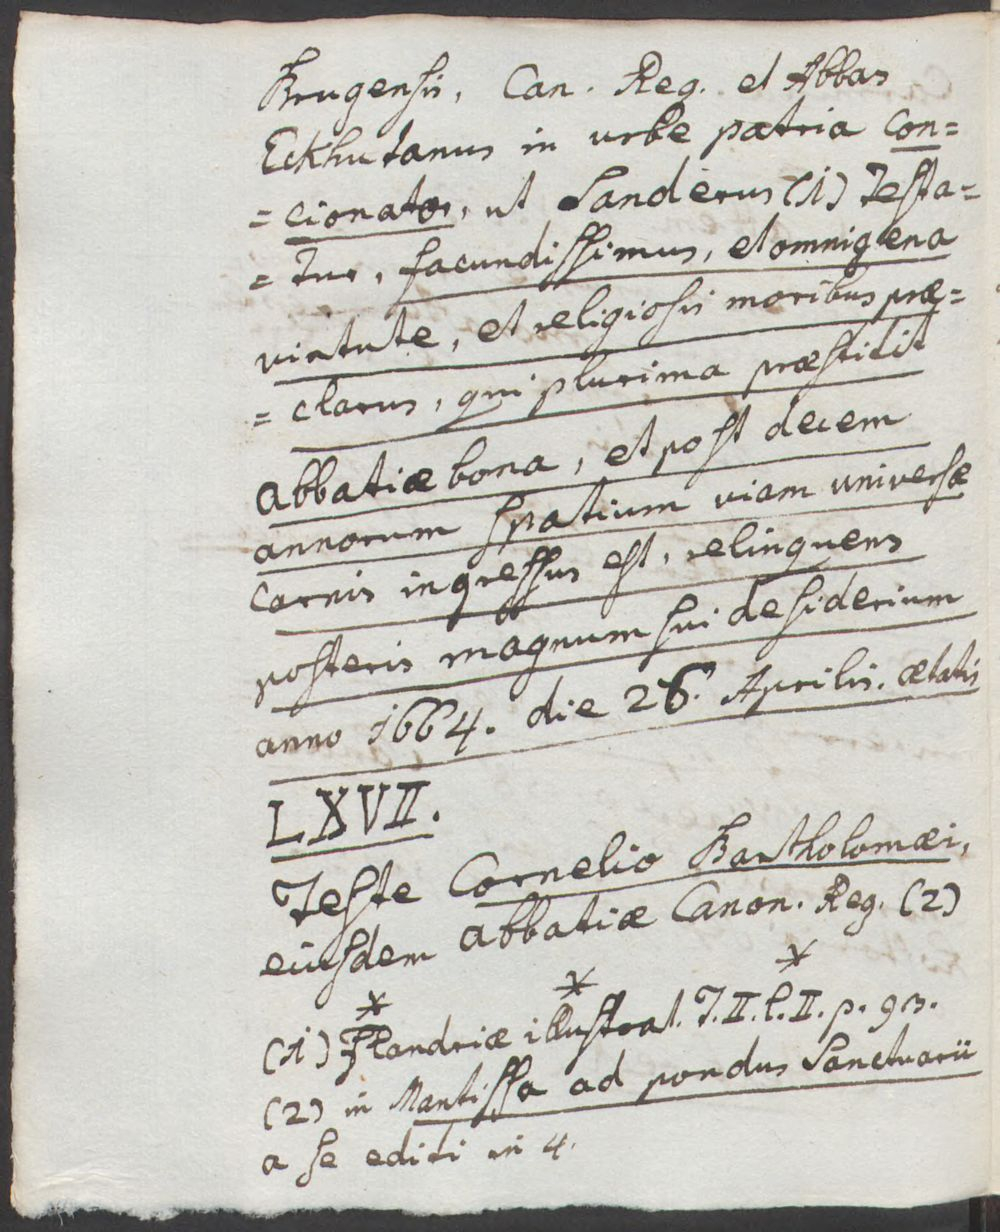 Brugensis, Can. Reg. et Abbas
Eckhutanus in urbe patria con=
=cionator, ut Sanderus (1) testa=
=tur, facundissimus, et omnigena
virtute, et religiosis moribus præ=
=clarus, qui plurima præstitit
abbatiæ bona, et post decem
annorum spatium viam universæ
carnis ingressus est, relinquens
posteris magnum sui desiderium
anno 1664. die 26. Aprilis. ætatis
LXVII.
Teste Cornelio Bartholomæi,
eiusdem abbatiæ Canon. Reg. (2)
* * *
(1) Flandriæ illustrat. T. II. l. II. p. 93.
(2) in Mantissa ad pondus Sanctuarii
a se editi in 4.